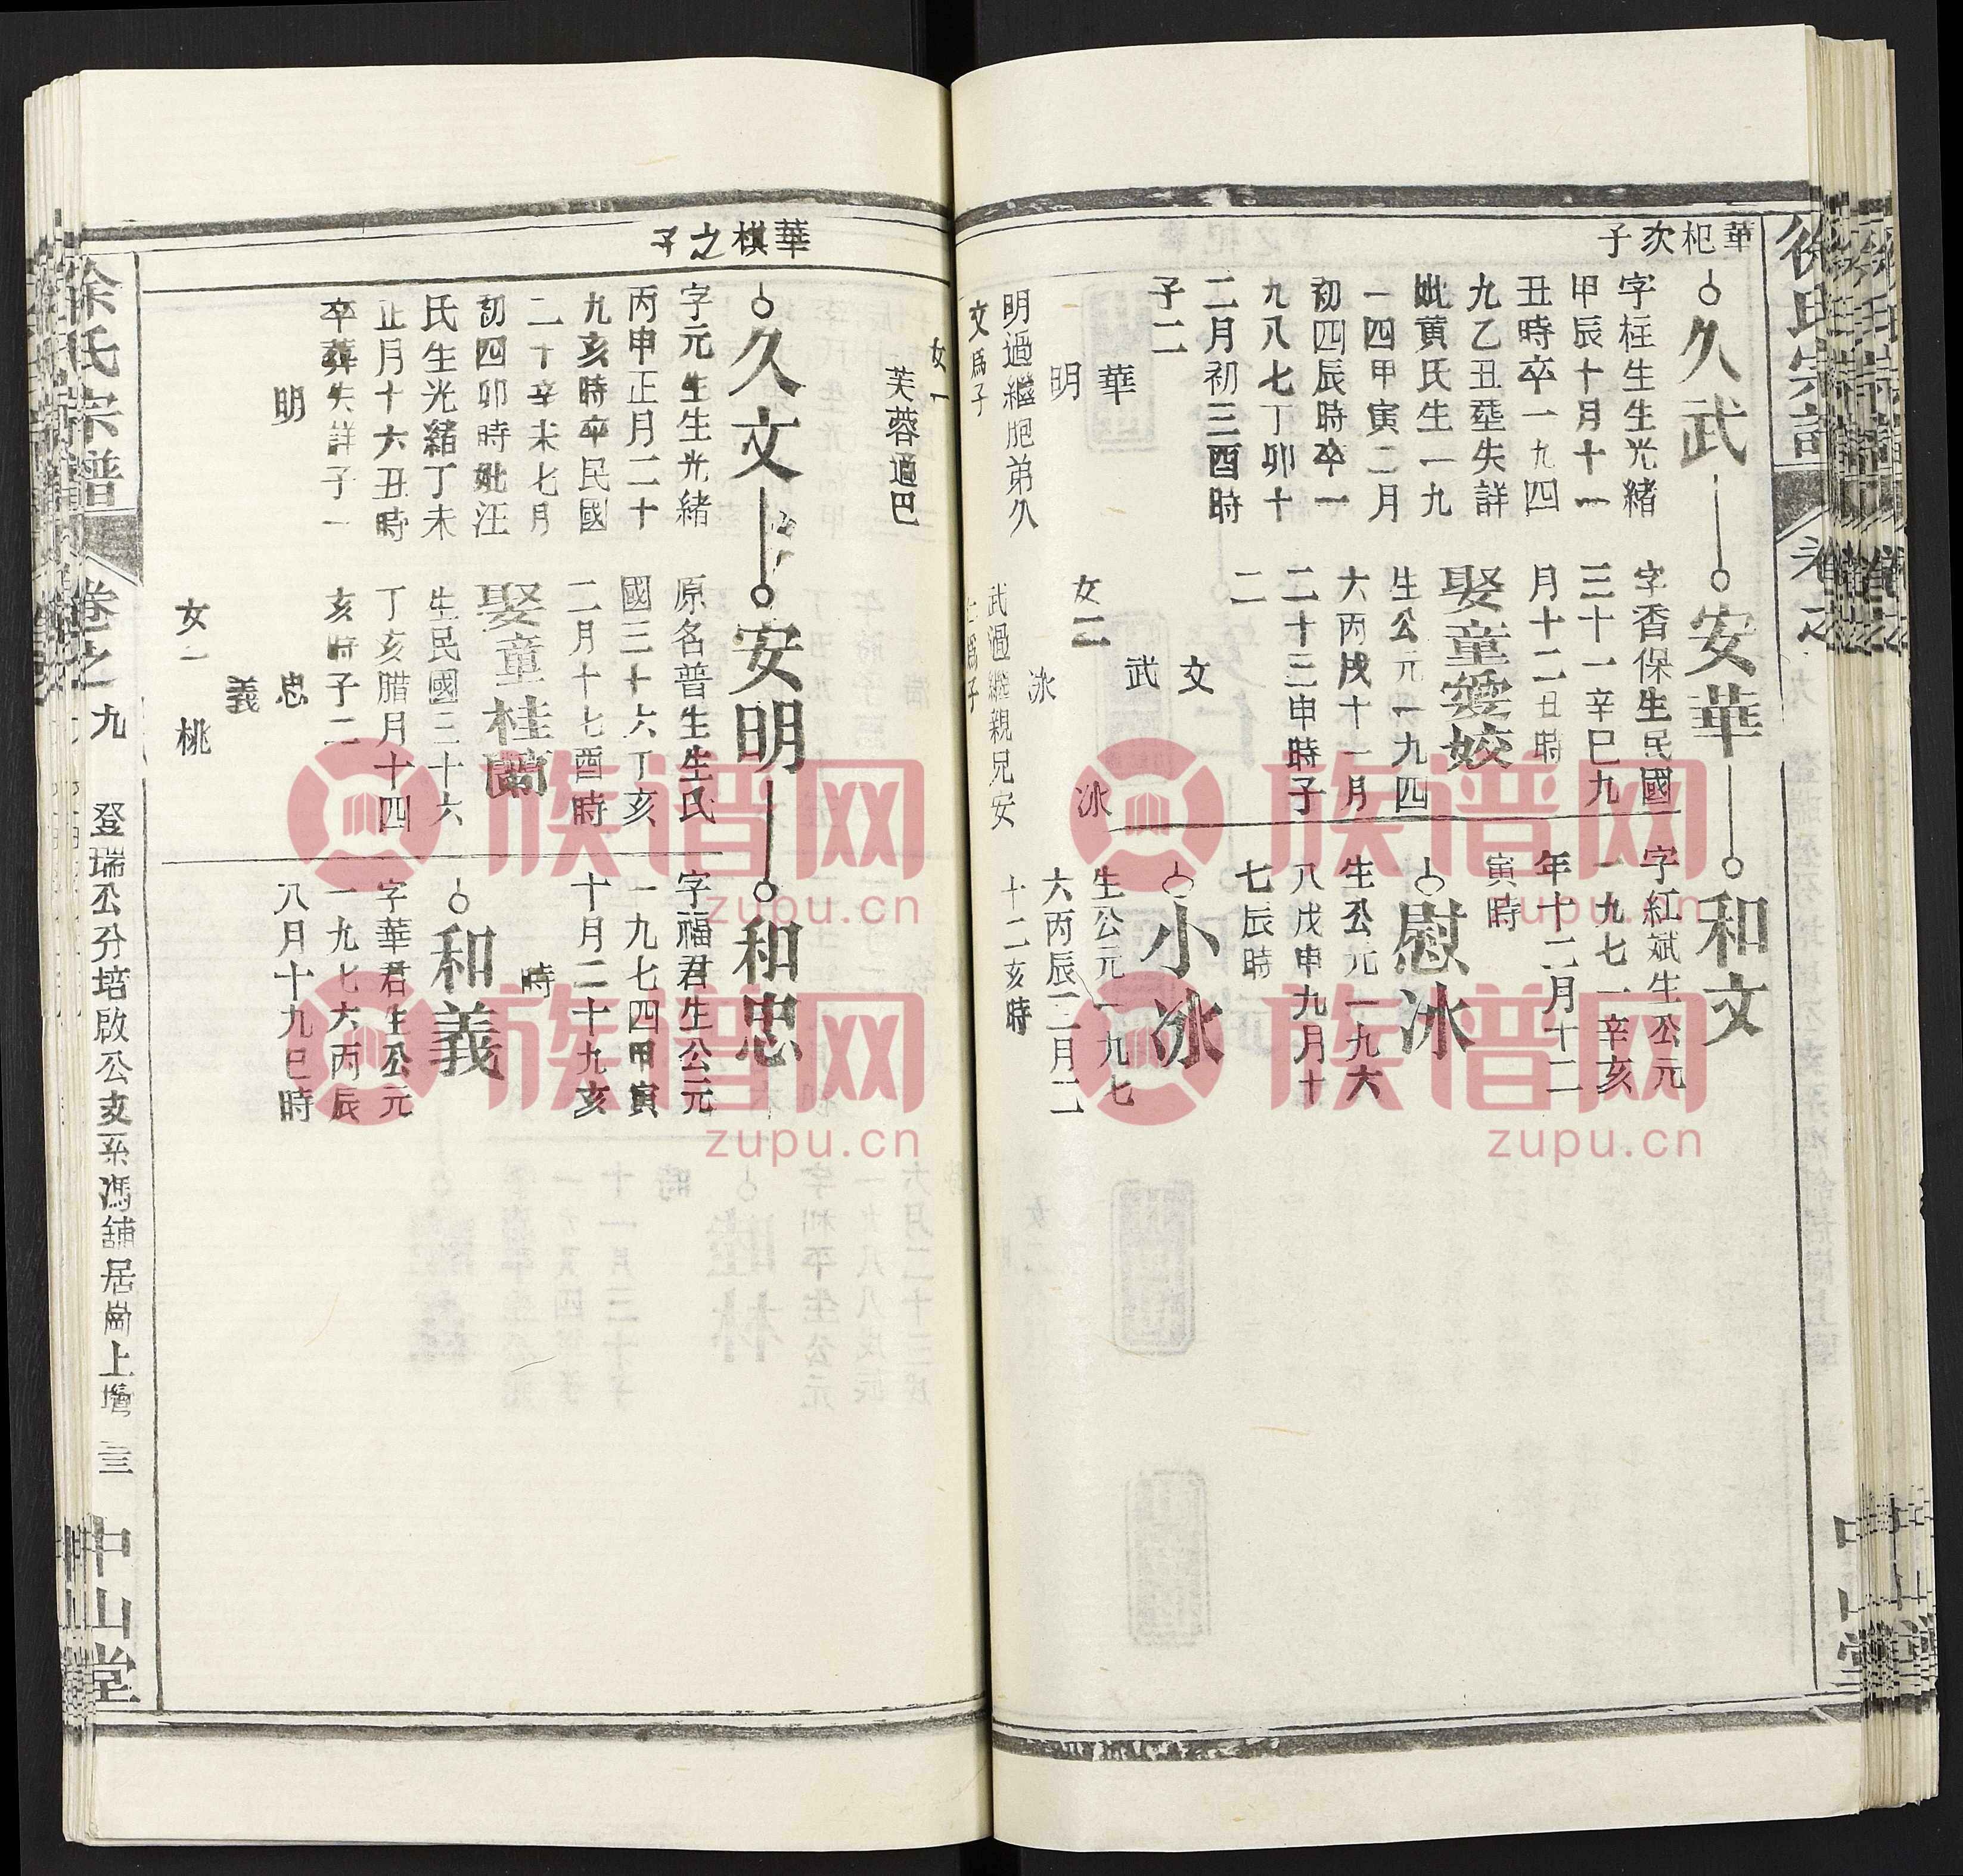 徐氏宗譜
卷之
華杞次子
久武
字柱生生光緒
甲辰十月十一
丑時卒一九四
九乙丑塟失詳
妣黄氏生一九
一四甲寅二月
初四辰時卒一
九八七丁卯十
二月初三酉時
子二
華
明
明過繼胞弟久
文爲子
女一
芙蓉適巴
安華
字香保生民國
三十一辛巳九
月十二丑時
娶童愛姣
生公元一九四
六丙戌十一月
二十三申時子
二
文
武
女二
冰
冰
武過繼親兄安
仁爲子
和文
字紅斌生公元
一九七一辛亥
年十二月十二
寅時
慰冰
生公元一九六
八戊申九月十
七辰時
小冰
生公元一九七
六丙辰二月二
十二亥時
華棋之子
久文
字元生生光緒
丙申正月二十
九亥時卒民國
二十辛未七月
初四卯時妣汪
氏生光緒丁未
正月十六丑時
卒葬失詳子一
明
安明
原名普生生民
國三十六丁亥
二月十七酉時
娶童桂蘭
生民國三十六
丁亥腊月十四
亥時子二
忠
義
女一
桃
和忠
字福君生公元
一九七四甲寅
十月二十九亥
時
和義
字華君生公元
一九七六丙辰
八月十九巳時
徐氏宗譜
卷之九
登瑞公分培啟公支系馮舖居崗上塆
三
中山堂
族谱网
zupu.cn
族谱网
zupu.cn
族谱网
zupu.cn
族谱网
zupu.cn